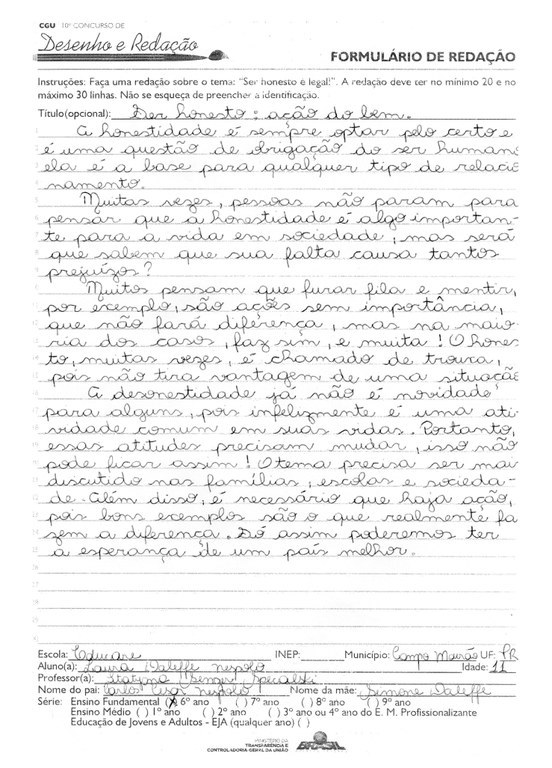 CGU 10º CONCURSO DE
Desenho e Redação
FORMULÁRIO DE REDAÇÃO
Instruções: Faça uma redação sobre o tema: "Ser honesto é legal!". A redação deve ter no mínimo 20 e no
máximo 30 linhas. Não se esqueça de preencher a identificação.
Título(opcional): Ser honesto: ação do bem.
A honestidade é sempre optar pelo certo e
é uma questão de obrigação do ser human
ela é a base para qualquer tipo de relacio
namento.
Muitas vezes, pessoas não param para
pensar que a honestidade é algo importan-
te para a vida em sociedade, mas será
que sabem que sua falta causa tantos
prejuízos?
Muitos pensam que furar fila e mentir,
por exemplo, são ações sem importância,
que não fará diferença, mas na maio
ria dos casos, faz sim, e muita! O hones
to, muitas vezes, é chamado de trouxa,
pois não tira vantagem de uma situação
A desonestidade já não é novidade
para alguns, pois infelizmente é uma ati
vidade comum em suas vidas. Portanto,
essas atitudes precisam mudar, isso não
pode ficar assim! O tema precisa ser mai
discutido nas famílias, escolas e socieda-
de. Além disso, é necessário que haja ação,
pois bons exemplos são o que realmente fa
zem a diferença. Só assim poderemos ter
a esperança de um país melhor.
Escola: Educare INEP: Município: Campo Mourão UF: PR
Aluno(a): Laura Daleffe Nespolo Idade: 11
Professor(a):
Nome do pai: Carlos Cesar Nespolo Nome da mãe: Simone Daleffe
Série: Ensino Fundamental (X) 6º ano ( ) 7º ano ( ) 8º ano ( ) 9º ano
Ensino Médio ( ) 1º ano ( ) 2º ano ( ) 3º ano ou 4º ano do E. M. Profissionalizante
Educação de Jovens e Adultos - EJA (qualquer ano) ( )
MINISTÉRIO DA
TRANSPARÊNCIA E
CONTROLADORIA-GERAL DA UNIÃO
BRASIL